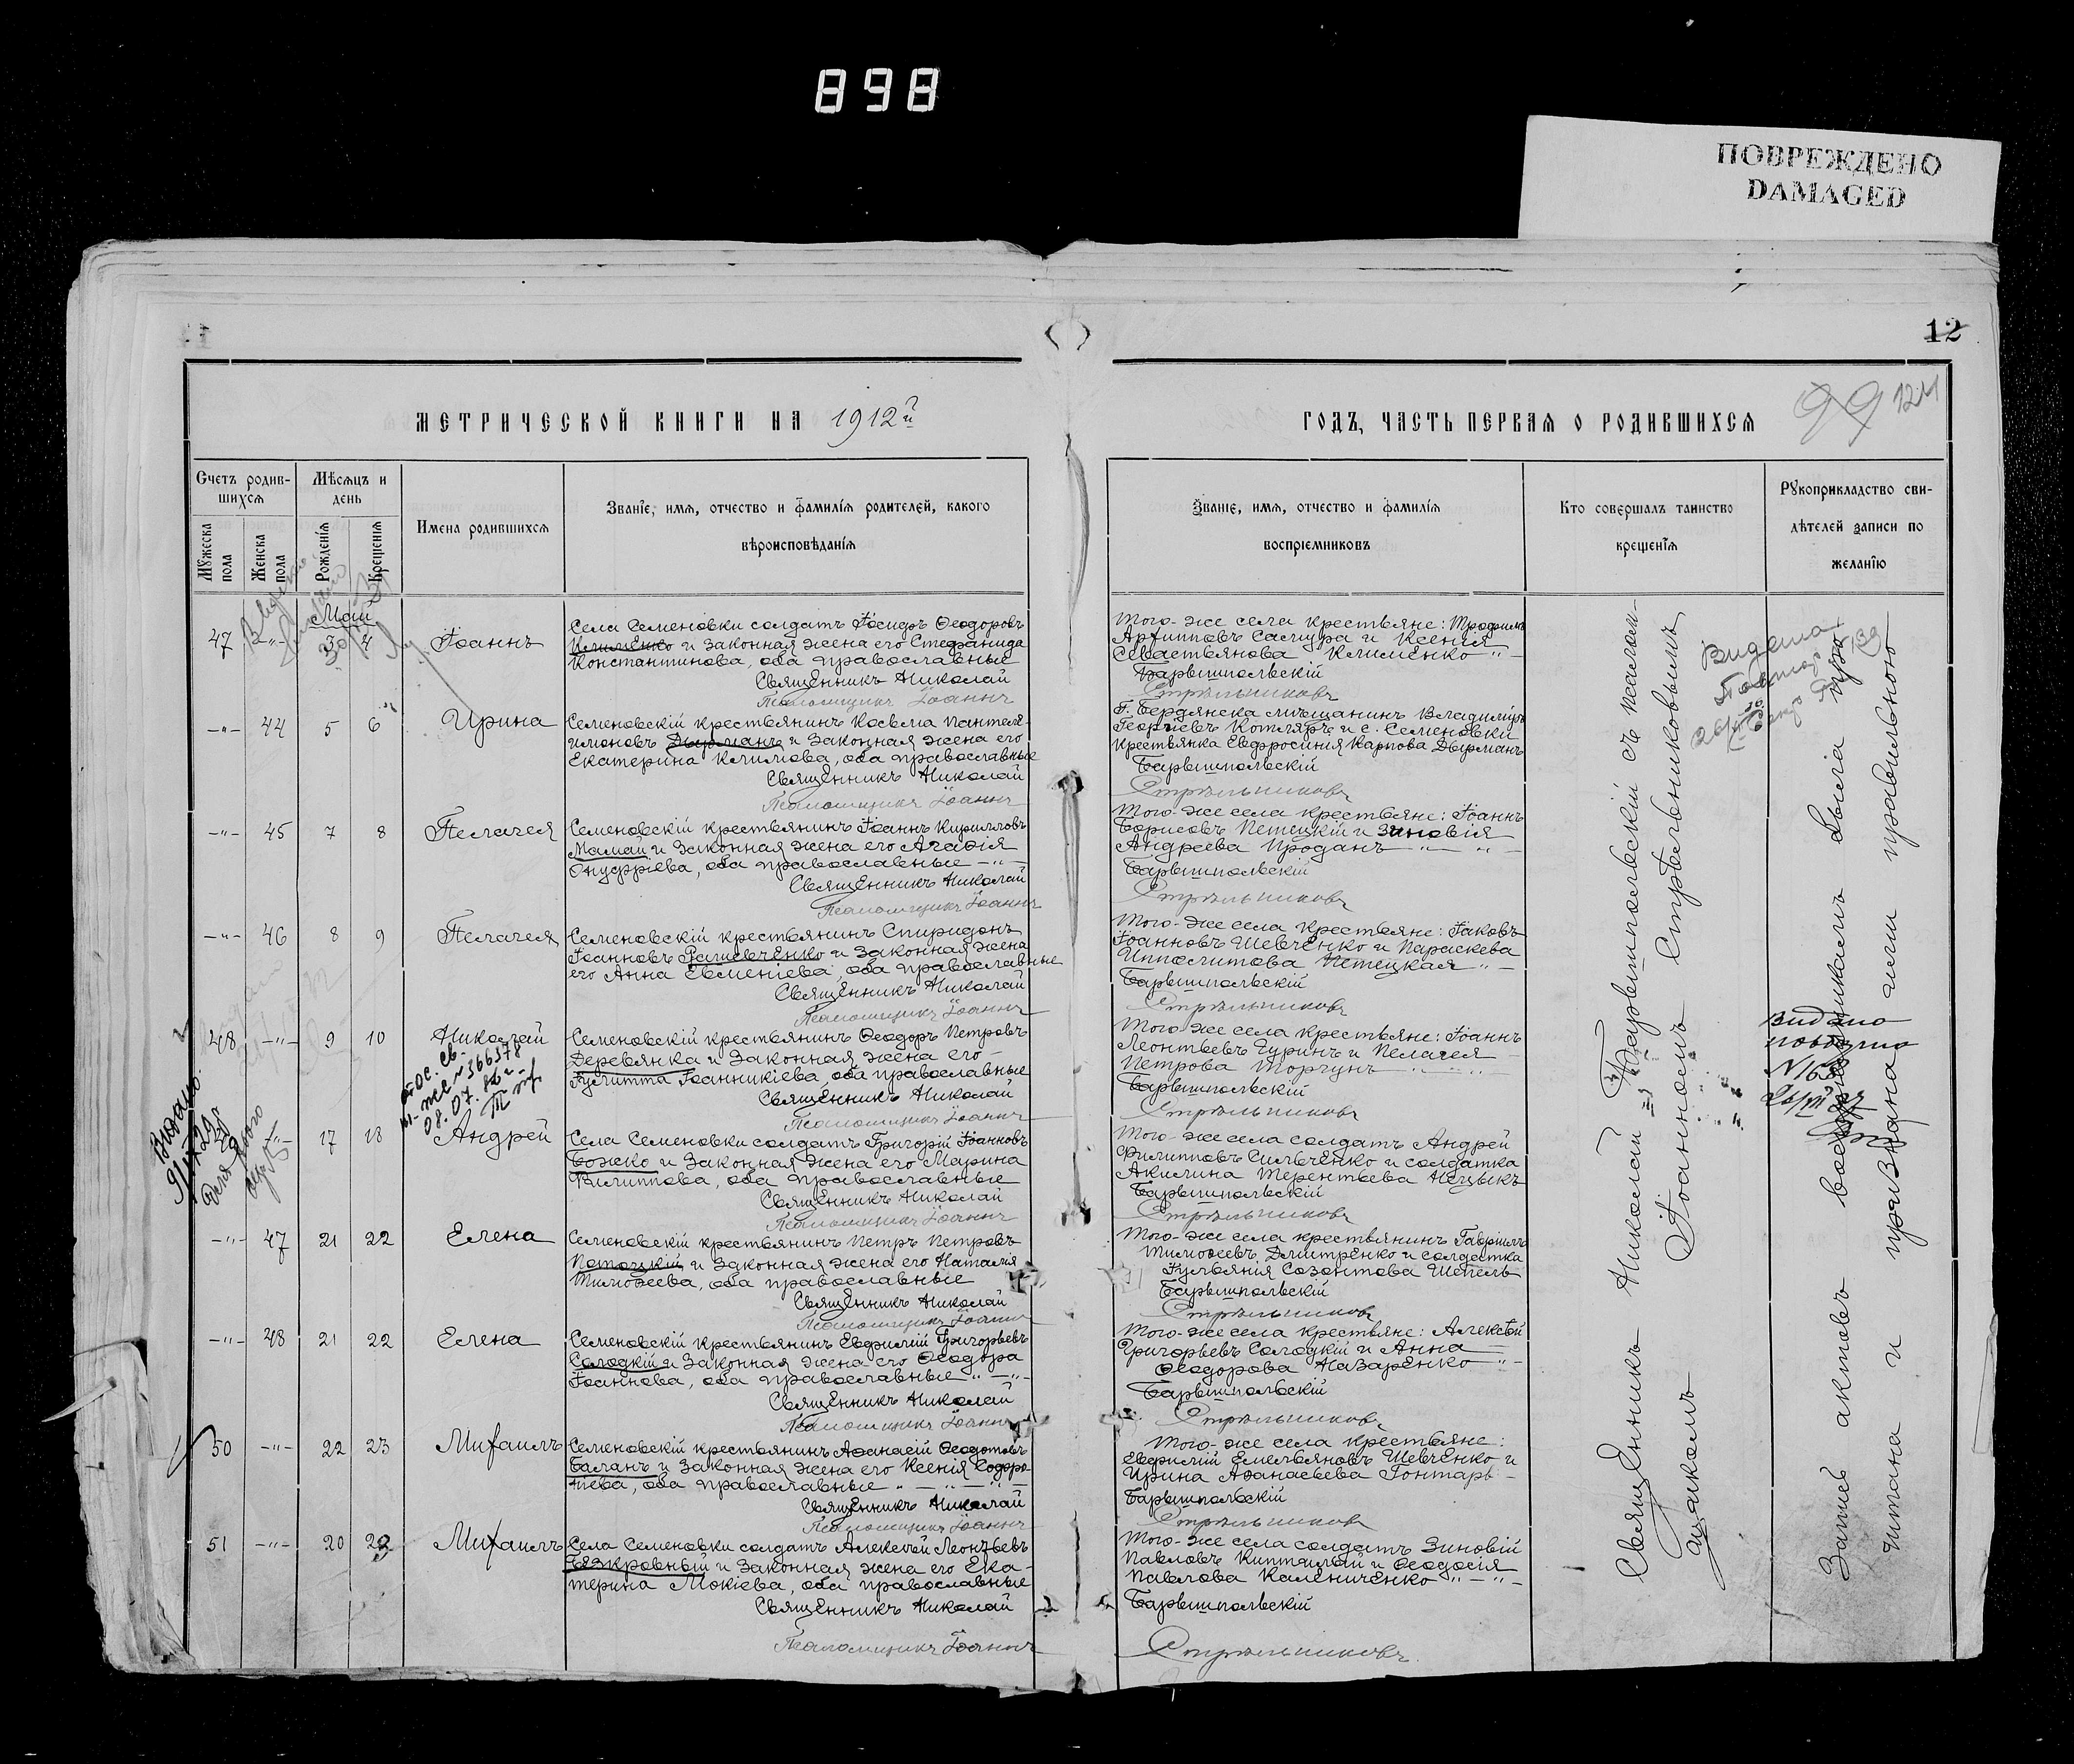 898
ПОВРЕЖДЕНО
DAMAGED
12
МЕТРИЧЕСКОЙ КНИГИ НА 1912й
ГОДЪ, ЧАСТЬ ПЕРВАЯ О РОДИВШИХСЯ
99
124
Счетъ родив-
шихся
Мѣсяцъ и
день
Мужеска
пола
Женска
пола
Рожденія
Крещенія
Имена родившихся
Званіе, имя, отчество и фамилія родителей, какого
вѣроисповѣданія
Званіе, имя, отчество и фамилія
воспріемниковъ
Кто совершалъ таинство
крещенія
Рукоприкладство сви-
дѣтелей записи по
желанію
Май
47 -"- 3 4 Іоаннъ
Села Семеновки солдатъ Іосифъ Ѳеодоровъ
Клименко и законная жена его Стефанида
Константинова, оба православные
Священникъ Николай
Псаломщикъ Іоаннъ
Того-же села крестьяне: Трофимъ
Архипповъ Сацура и Ксенія
Севастьянова Клименко -"-
Барвишпольскій
Стрѣльниковъ
-"- 44 5 6 Ирина
Семеновскій крестьянинъ Косьма Пантеле-
имоновъ Дырманъ и законная жена его
Екатерина Климова, оба православные
Священникъ Николай
Псаломщикъ Іоаннъ
Г. Бердянска мѣщанинъ Владиміръ
Георгіевъ Котляръ и с. Семеновки
крестьянка Евфросинія Карпова Дырманъ
Барвишпольскій
Стрѣльниковъ
-"- 45 7 8 Пелагея
Семеновскій крестьянинъ Іоаннъ Кирилловъ
Мамай и законная жена его Агафія
Онуфріева, оба православные -"-
Священникъ Николай
Псаломщикъ Іоаннъ
Того-же села крестьяне: Іоаннъ
Борисовъ Петецкій и Зиновія
Андреева Проданъ -"- -"-
Барвишпольскій
Стрѣльниковъ
-"- 46 8 9 Пелагея
Семеновскій крестьянинъ Спиридонъ
Іоанновъ Рашевченко и законная жена
его Анна Евменіева, оба православные
Священникъ Николай
Псаломщикъ Іоаннъ
Того-же села крестьяне: Іаковъ
Іоанновъ Шевченко и Параскева
Ипполитова Петецкая -"-
Барвишпольскій
Стрѣльниковъ
48 -"- 9 10 Николай
Семеновскій крестьянинъ Ѳеодоръ Петровъ
Деревянка и законная жена его
Іулитта Іоанникіева, оба православные
Священникъ Николай
Псаломщикъ Іоаннъ
Того-же села крестьяне: Іоаннъ
Леонтьевъ Гуринъ и Пелагея
Петрова Моргунъ
Барвишпольскій
Стрѣльниковъ
-"- 17 18 Андрей
Села Семеновки солдатъ Григорій Іоанновъ
Божко и законная жена его Марина
Филиппова, оба православные
Священникъ Николай
Псаломщикъ Іоаннъ
Того-же села солдатъ Андрей
Филипповъ Сильченко и солдатка
Акилина Терентьева Нецыкъ
Барвишпольскій
Стрѣльниковъ
-"- 47 21 22 Елена
Семеновскій крестьянинъ Петръ Петровъ
Потоцкій и законная жена его Наталія
Тимоѳеева, оба православные
Священникъ Николай
Псаломщикъ Іоаннъ
Того-же села крестьянинъ Гавріилъ
Тимоѳеевъ Дмитренко и солдатка
Іульянія Созонтова Шепель
Барвишпольскій
Стрѣльниковъ
-"- 48 21 22 Елена
Семеновскій крестьянинъ Евфимій Григорьевъ
Солодкій и законная жена его Ѳеодора
Іоаннова, оба православные -"-
Священникъ Николай
Псаломщикъ Іоаннъ
Того-же села крестьяне: Алексѣй
Григорьевъ Солодкій и Анна
Ѳеодорова Назаренко -"-
Барвишпольскій
Стрѣльниковъ
50 -"- 22 23 Михаилъ
Семеновскій крестьянинъ Аѳанасій Ѳеодотовъ
Баланъ и законная жена его Ксенія
оба православные
Священникъ Николай
Псаломщикъ Іоаннъ
Того-же села крестьяне:
Евфимій Емельяновъ Шевченко и
Ирина Аѳанасьева Гонтарь
Барвишпольскій
Стрѣльниковъ
51 -"- 20 Михаилъ
Села Семеновки солдатъ Алексѣй Леонтьевъ
Безкровный и законная жена его Ека-
терина Мокіева, оба православные
Священникъ Николай
Псаломщикъ Іоаннъ
Того-же села солдатъ Зиновій
Павловъ и Ѳеодосія
Павлова Калениченко -"-
Барвишпольскій
Стрѣльниковъ
Священникъ Николай Барвишпольскій съ псалом-
щикомъ Іоанномъ Стрѣльниковымъ
Запись актовъ воспріемникамъ была про-
читана и признана ими правильною
Видано
повторно
N 168
Видано